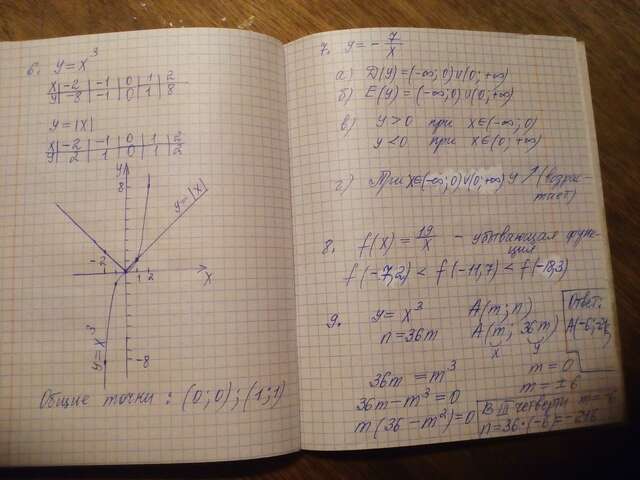 6. y = x³
x | -2 | -1 | 0 | 1 | 2
y | -8 | -1 | 0 | 1 | 8
y = |x|
x | -2 | -1 | 0 | 1 | 2
y | 2 | 1 | 0 | 1 | 2
y
8
y=|x|
-2
1 2
x
y=x³
-8
Общие точки: (0;0); (1;1)
7. y = - 7/x
а) D(y) = (-∞;0)∪(0;+∞)
б) E(y) = (-∞;0)∪(0;+∞)
в) y>0 при x∈(-∞;0)
y<0 при x∈(0;+∞)
г) При x∈(-∞;0)∪(0;+∞) y ↗ (возрас-
тает)
8. f(x) = 19/x - убывающая функ-
ция
f(-7,2) < f(-11,7) < f(-18,3)
9. y = x³ A(m; n)
n = 36m A(m; 36m)
x y
Ответ:
36m = m³ m = 0
36m - m³ = 0 m = ±6
m(36 - m²) = 0 В III четверти m = -6
n = 36·(-6) = -216